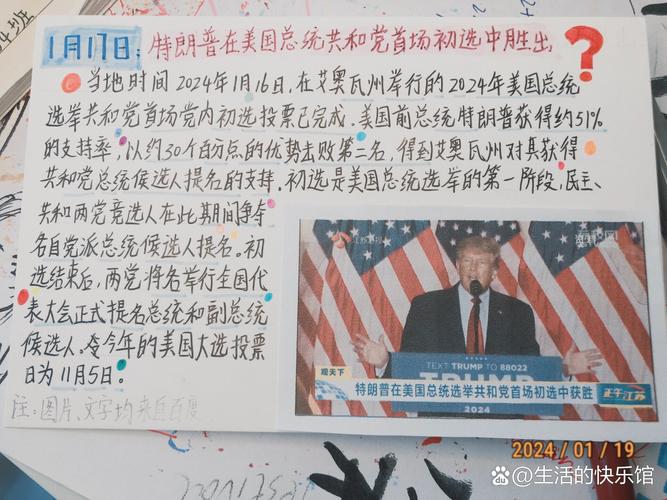 1月17日:特朗普在美国总统共和党首场初选中胜出?
当地时间2024年1月16日,在艾奥瓦州举行的2024年美国总统
选举共和党首场党内初选投票已完成。美国前总统特朗普获得约51%
的支持率,以约30个百分点的优势击败第二名,得到艾奥瓦州对其获得
共和党总统候选人提名的支持。初选是美国总统选举的第一阶段,民主、
共和两党竞选人在此期间争夺
各自党派总统候选人提名。初
选结束后,两党将各举行全国代
表大会正式提名总统和副总统
候选人。今年的美国大选投票
日为11月5日。
注:图片、文字均来自百度
江苏卫视
TEXT TRUMP TO 88022
TRUMP
观天下
特朗普在美国总统选举共和党首场初选中获胜
正午江苏
2024
2024/01/19
百家号/生活的快乐馆